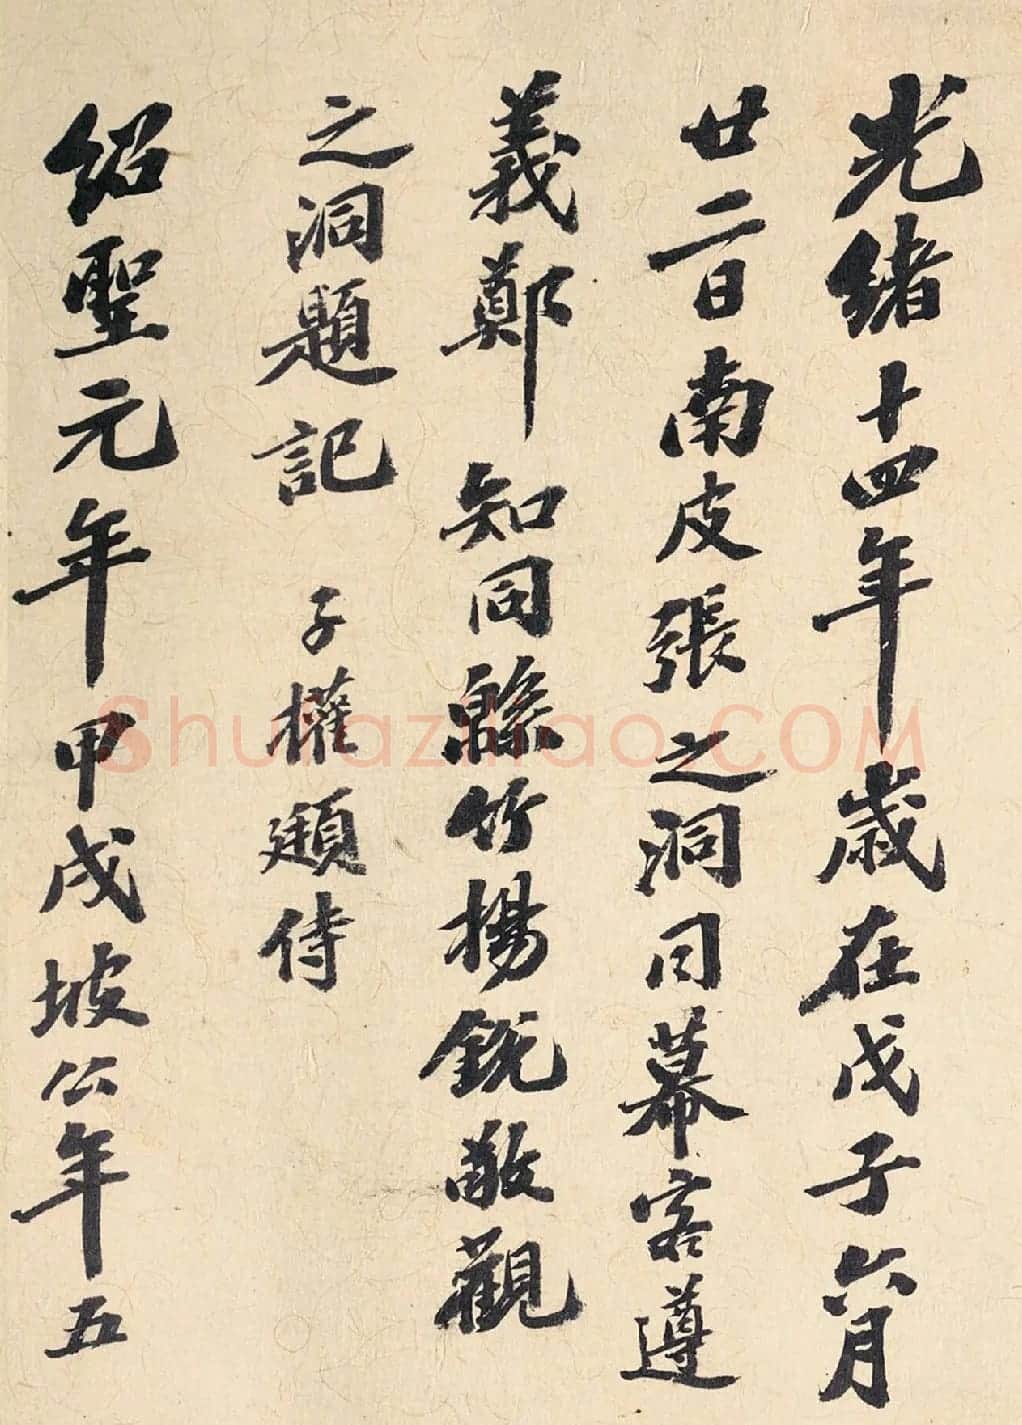 光緒十四年歲在戊子六月
廿二日南皮張之洞同幕客遵
義鄭知同緜竹楊銳敬觀
之洞題記 子權頲侍
紹聖元年甲戌坡公年五
Shufaziliao.COM